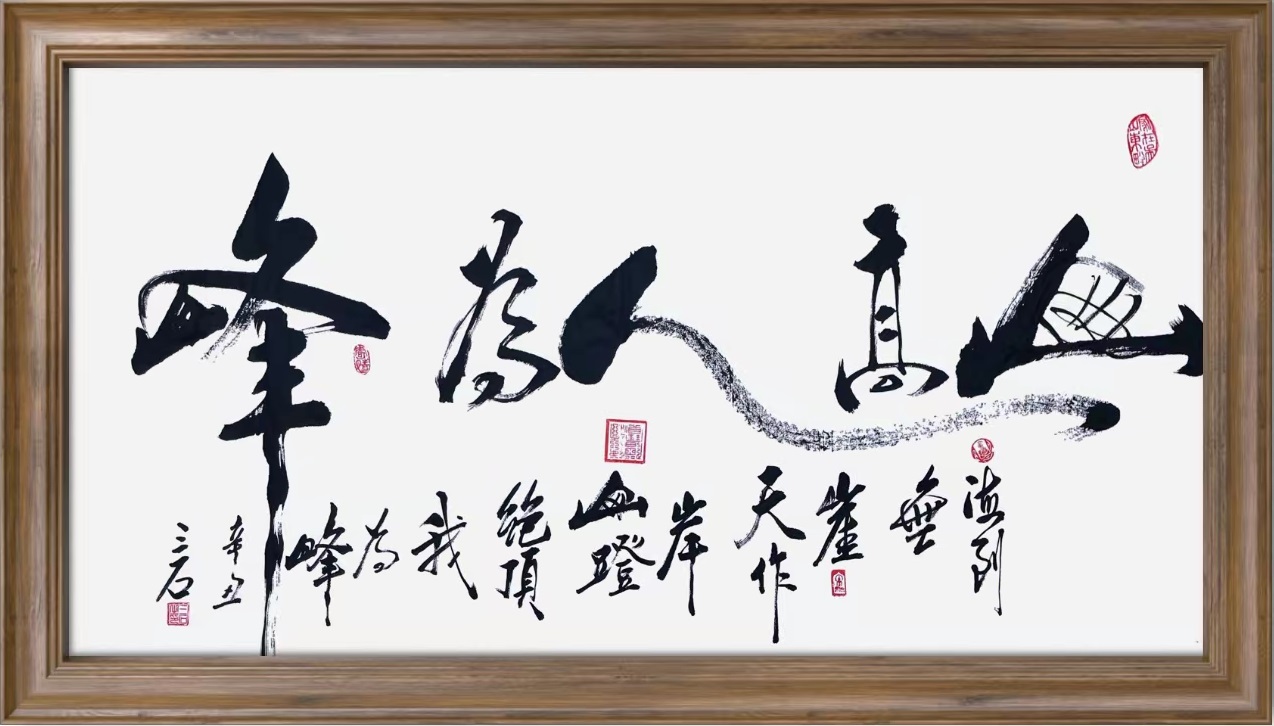 山高人為峰
海到無崖天作岸山登絕頂我為峰
辛丑
三石